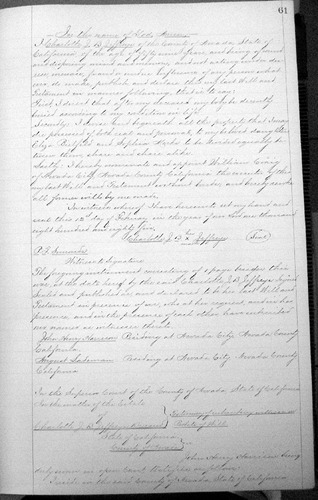 61
In the name of God Amen
I Charlotte J. B. Jeffrey of the County of Nevada State of
California of the age of fifty nine years and being of sound
and disposing mind and memory, and not acting under du-
ress, menace, fraud or undue influence of any person what
ever, do make publish and declare this my last Will and
Testament in manner following, that is to say:
First, I direct that after my decease my body be decently
buried according to my
Secondly: I leave and bequeath all the property that I may
die possessed of both real and personal to my beloved daughters
Eliza and Sophia to be divided equally be
tween them share and share alike.
Lastly: I hereby nominate and appoint William
of Nevada City, Nevada County California the executor of this
my last Will and Testament without bonds and hereby revoke
all former wills by me made
In witness whereof I have hereunto set my hand and
seal this 12th day of February in the year of our Lord one thousand
eight hundred and eighty
Charlotte J. B. Jeffrey (Seal)
Witness to signature
The foregoing instrument consisting of 1 page besides this
was, at the date hereof by the said Charlotte J. B. Jeffrey signed
sealed and published as and declared to be her last Will and
Testament in presence of us, who at her request and in her
presence and in the presence of each other have subscribed
our names as witnesses thereto.
John Henry Residing at Nevada City Nevada County
California
Residing at Nevada City Nevada County
California
In the Superior Court of the County of Nevada State of California
In the matter of the Estate
of
Charlotte J. B. Jeffrey deceased
Testimony of subscribing witness on
Probate of Will
State of California
County of Nevada
John Henry being
duly sworn in open Court testifies as follows:
I reside in the said County of Nevada State of California